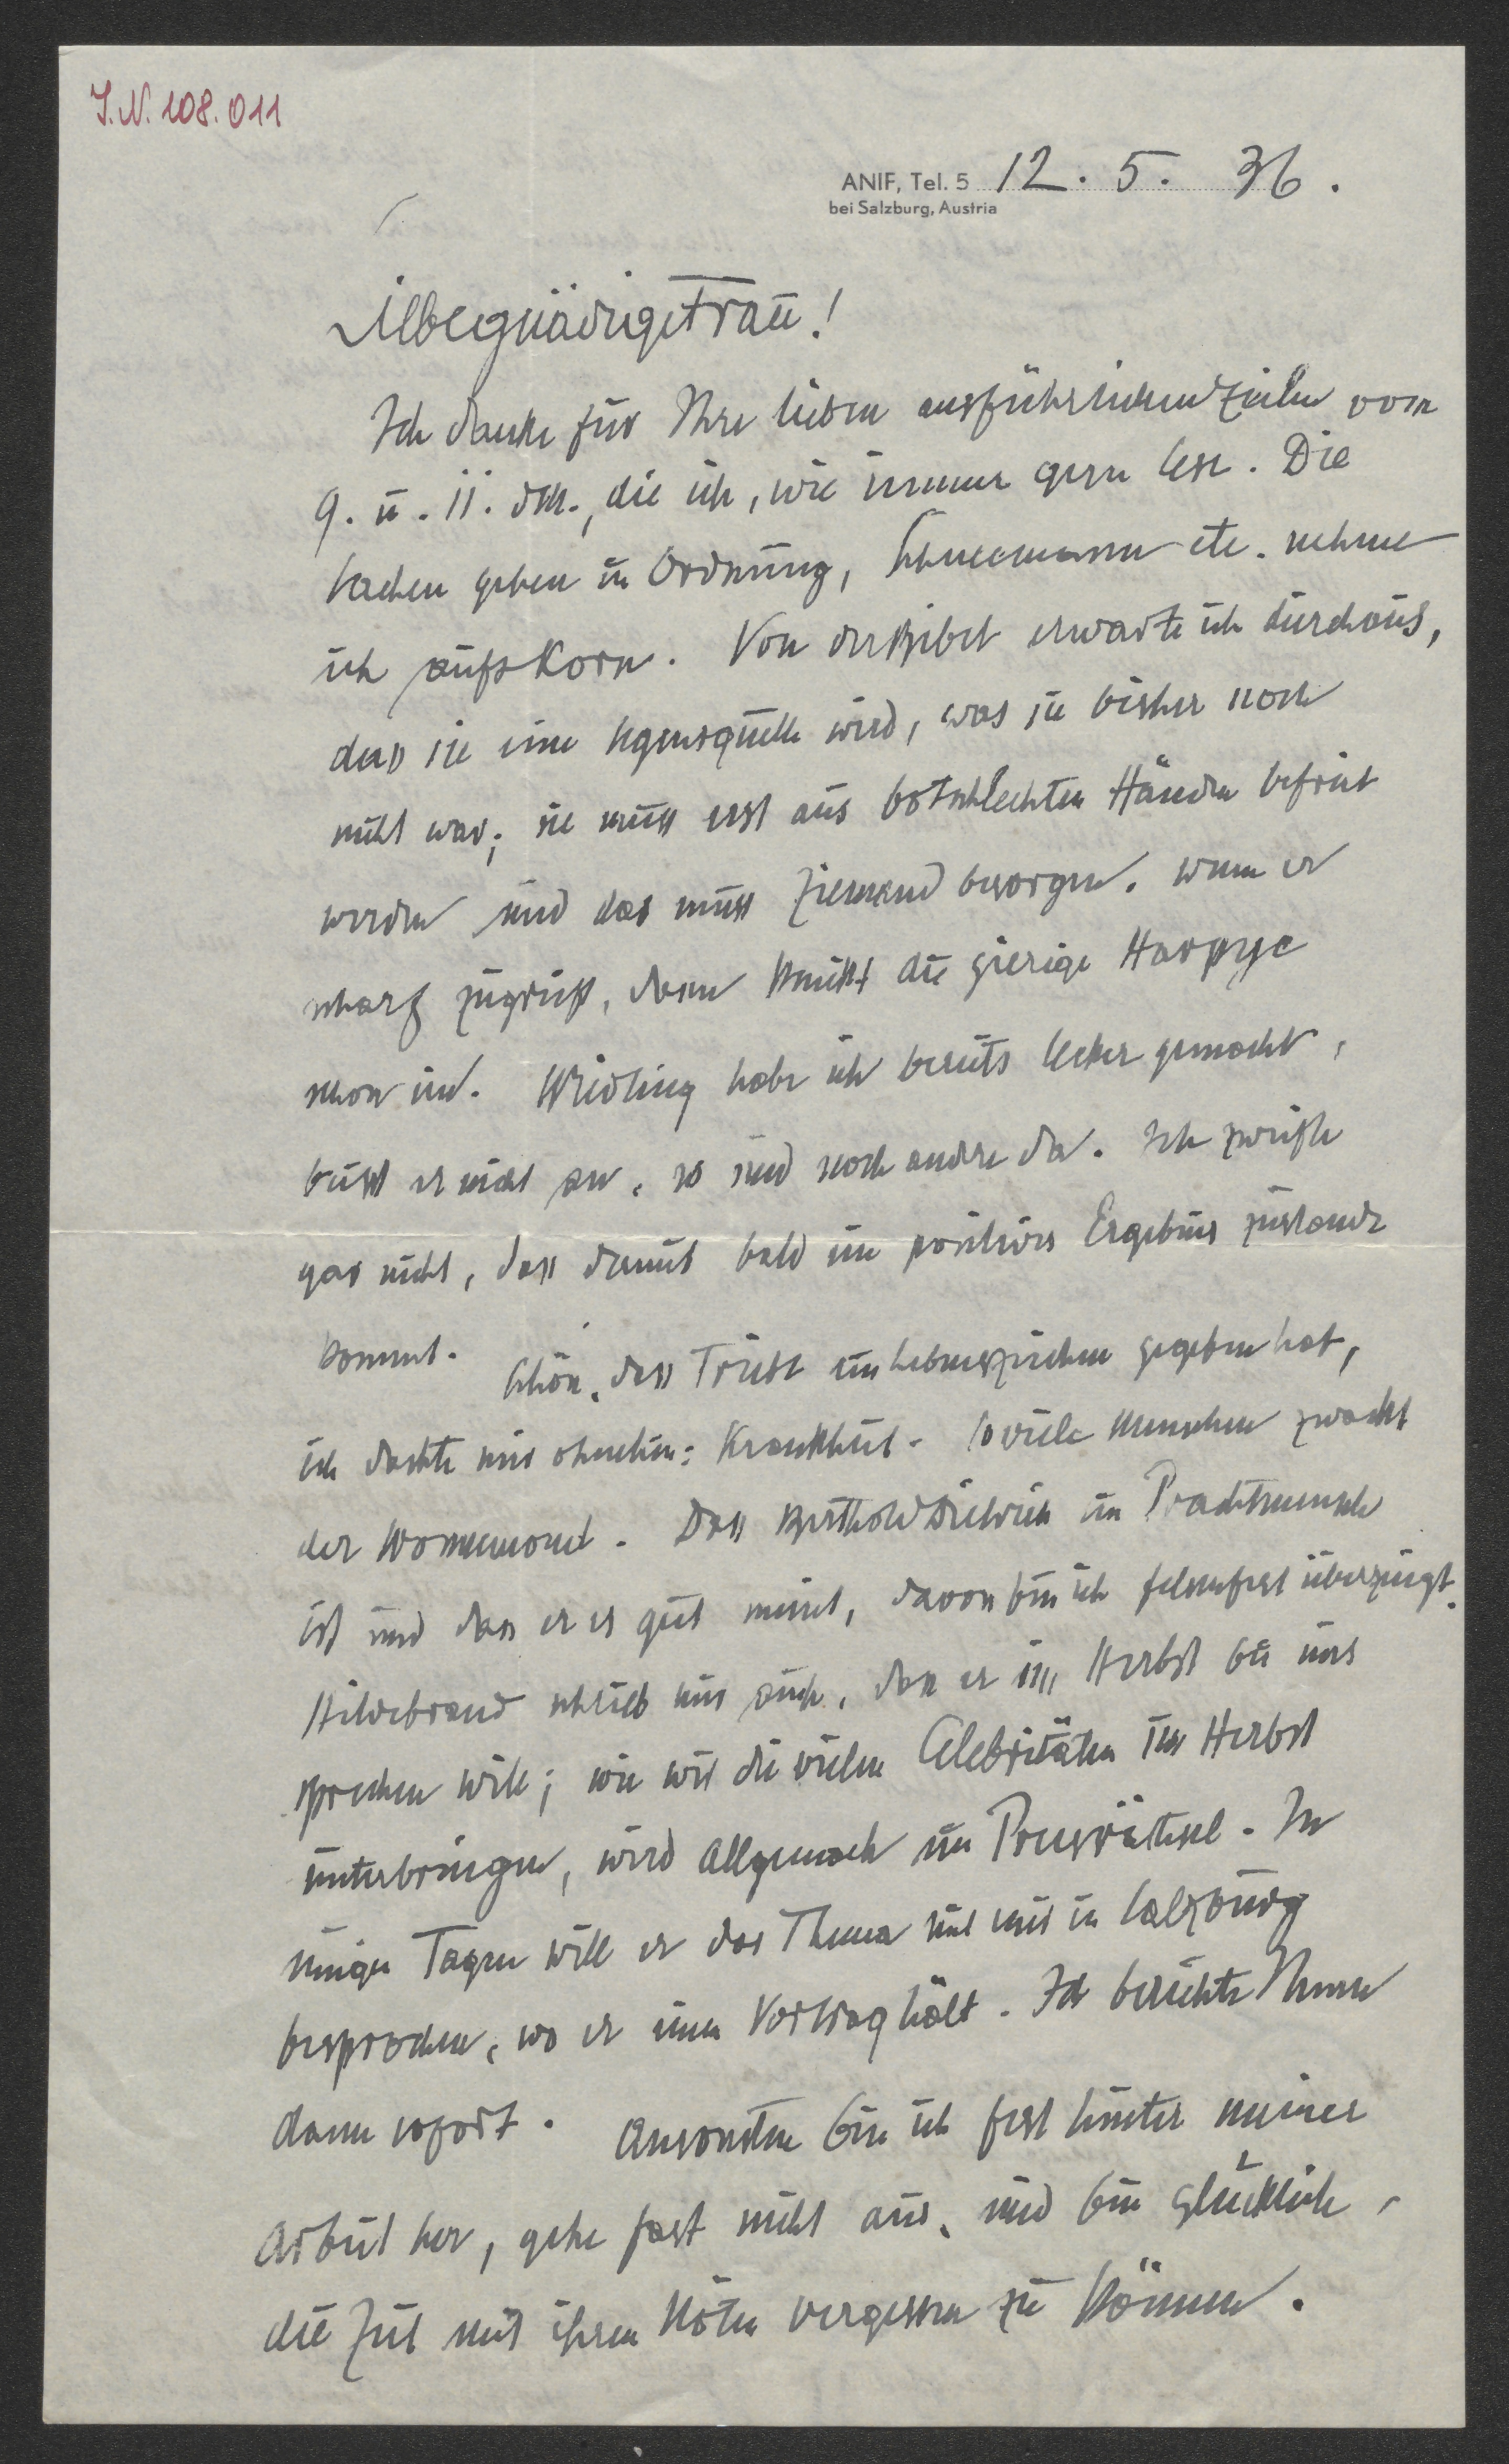 I.N. 108.011
ANIF, Tel. 5 12. 5. 36.
bei Salzburg, Austria
Liebe gnädige Frau!
Ich danke für Ihre lieben ausführlichen Zeilen vom
9. u. 11. ds., die ich, wie immer gern lese. Die
Sachen gehen in Ordnung, Schneemann etc. nehme
ich aufs Korn. Von der Bibel erwarte ich durchaus,
dass sie eine Segensquelle wird, was sie bisher noch
nicht war; sie muss erst aus schlechten Händen befreit
werden und das muss besorgen. Wenn er
scharf zugreift, dann knickt die gierige Harpye
schon ein. Wiedling habe ich bereits lecker gemacht,
beisst er nicht an, so sind noch andre da. Ich zweifle
gar nicht, dass damit bald ein positives Ergebnis zustande
kommt. Schön, dass ein Lebenszeichen gegeben hat,
ich dachte mir ohnehin: Krankheit. So viele Menschen zwackt
der Wonnemonat. Dass Berthold Dietrich ein Prachtmensch
ist und dass er es gut meint, davon bin ich felsenfest überzeugt.
Hildebrand schrieb mir auch, dass er im Herbst bei uns
sprechen will; wie wir die vielen Celebritäten im Herbst
unterbringen, wird allgemach ein Preisrätsel. In
einigen Tagen will er das Thema mit mir in Salzburg
besprechen, wo er einen Vortrag hält. Ich berichte Ihnen
dann sofort. Ansonsten bin ich fest hinter meiner
Arbeit her, gehe fast nicht aus, und bin glücklich,
die Zeit mit ihren Nöten vergessen zu können.